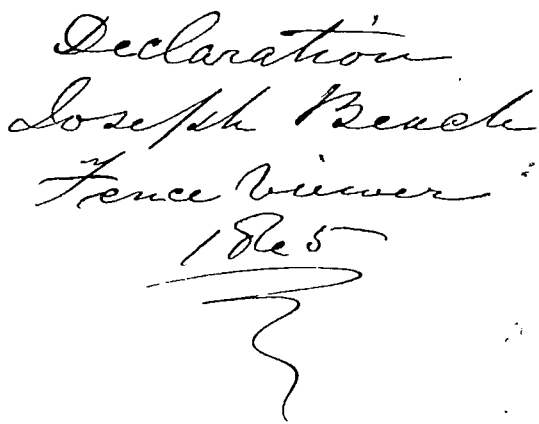 Declaration
Joseph Beach
Fence Viewer
1865